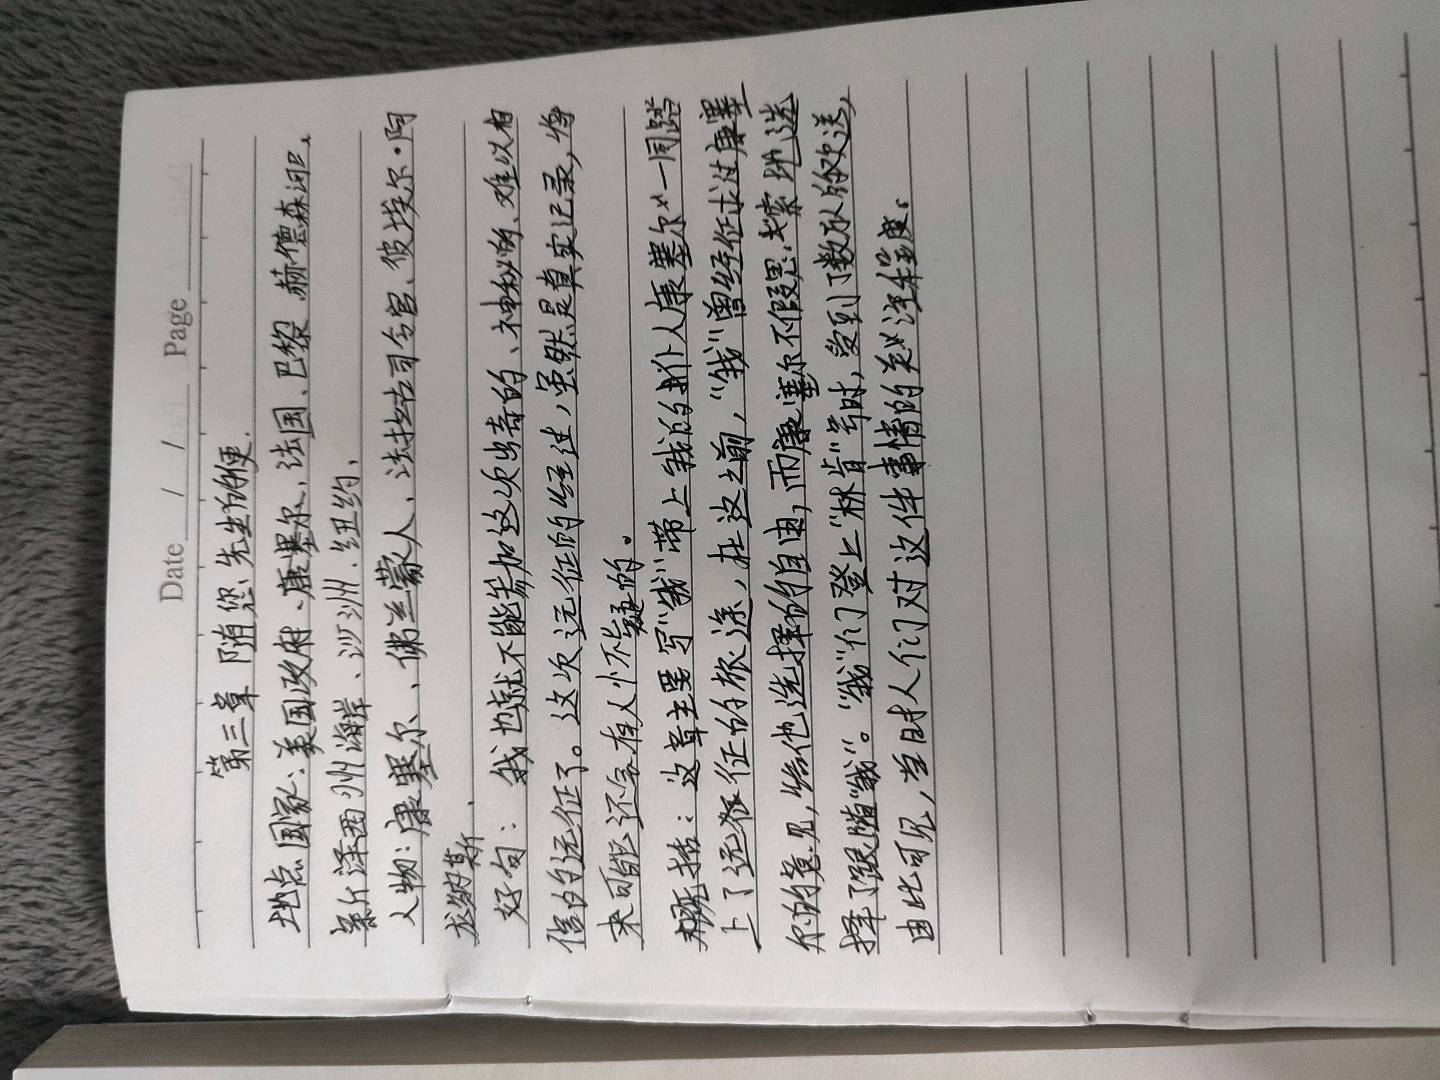 Date / / Page
第三章 随您先生的便.
地点国家:美国政府、康塞尔、法国、巴黎、赫德森湾、
新泽西州海岸、沙洲、纽约、
人物:康塞尔、佛兰蒙人、法拉古司令官、彼埃尔·阿
龙纳斯、
好句: 我也就不能参加这次出奇的、神秘的、难以相
信的远征了。这次远征的经过,虽然是真实记录,将
来可能还会有人怀疑的。
概括:这章主要写“我”带上我的仆人康塞尔一同踏
上了远征的旅途,在这之前,“我”曾经征求过康塞
尔的意见,给他选择的自由,而康塞尔不假思索地选
择了跟随“我”。“我”们登上“林肯”号时,受到了数次的欢送,
由此可见,当时人们对这件事情的关注程度。